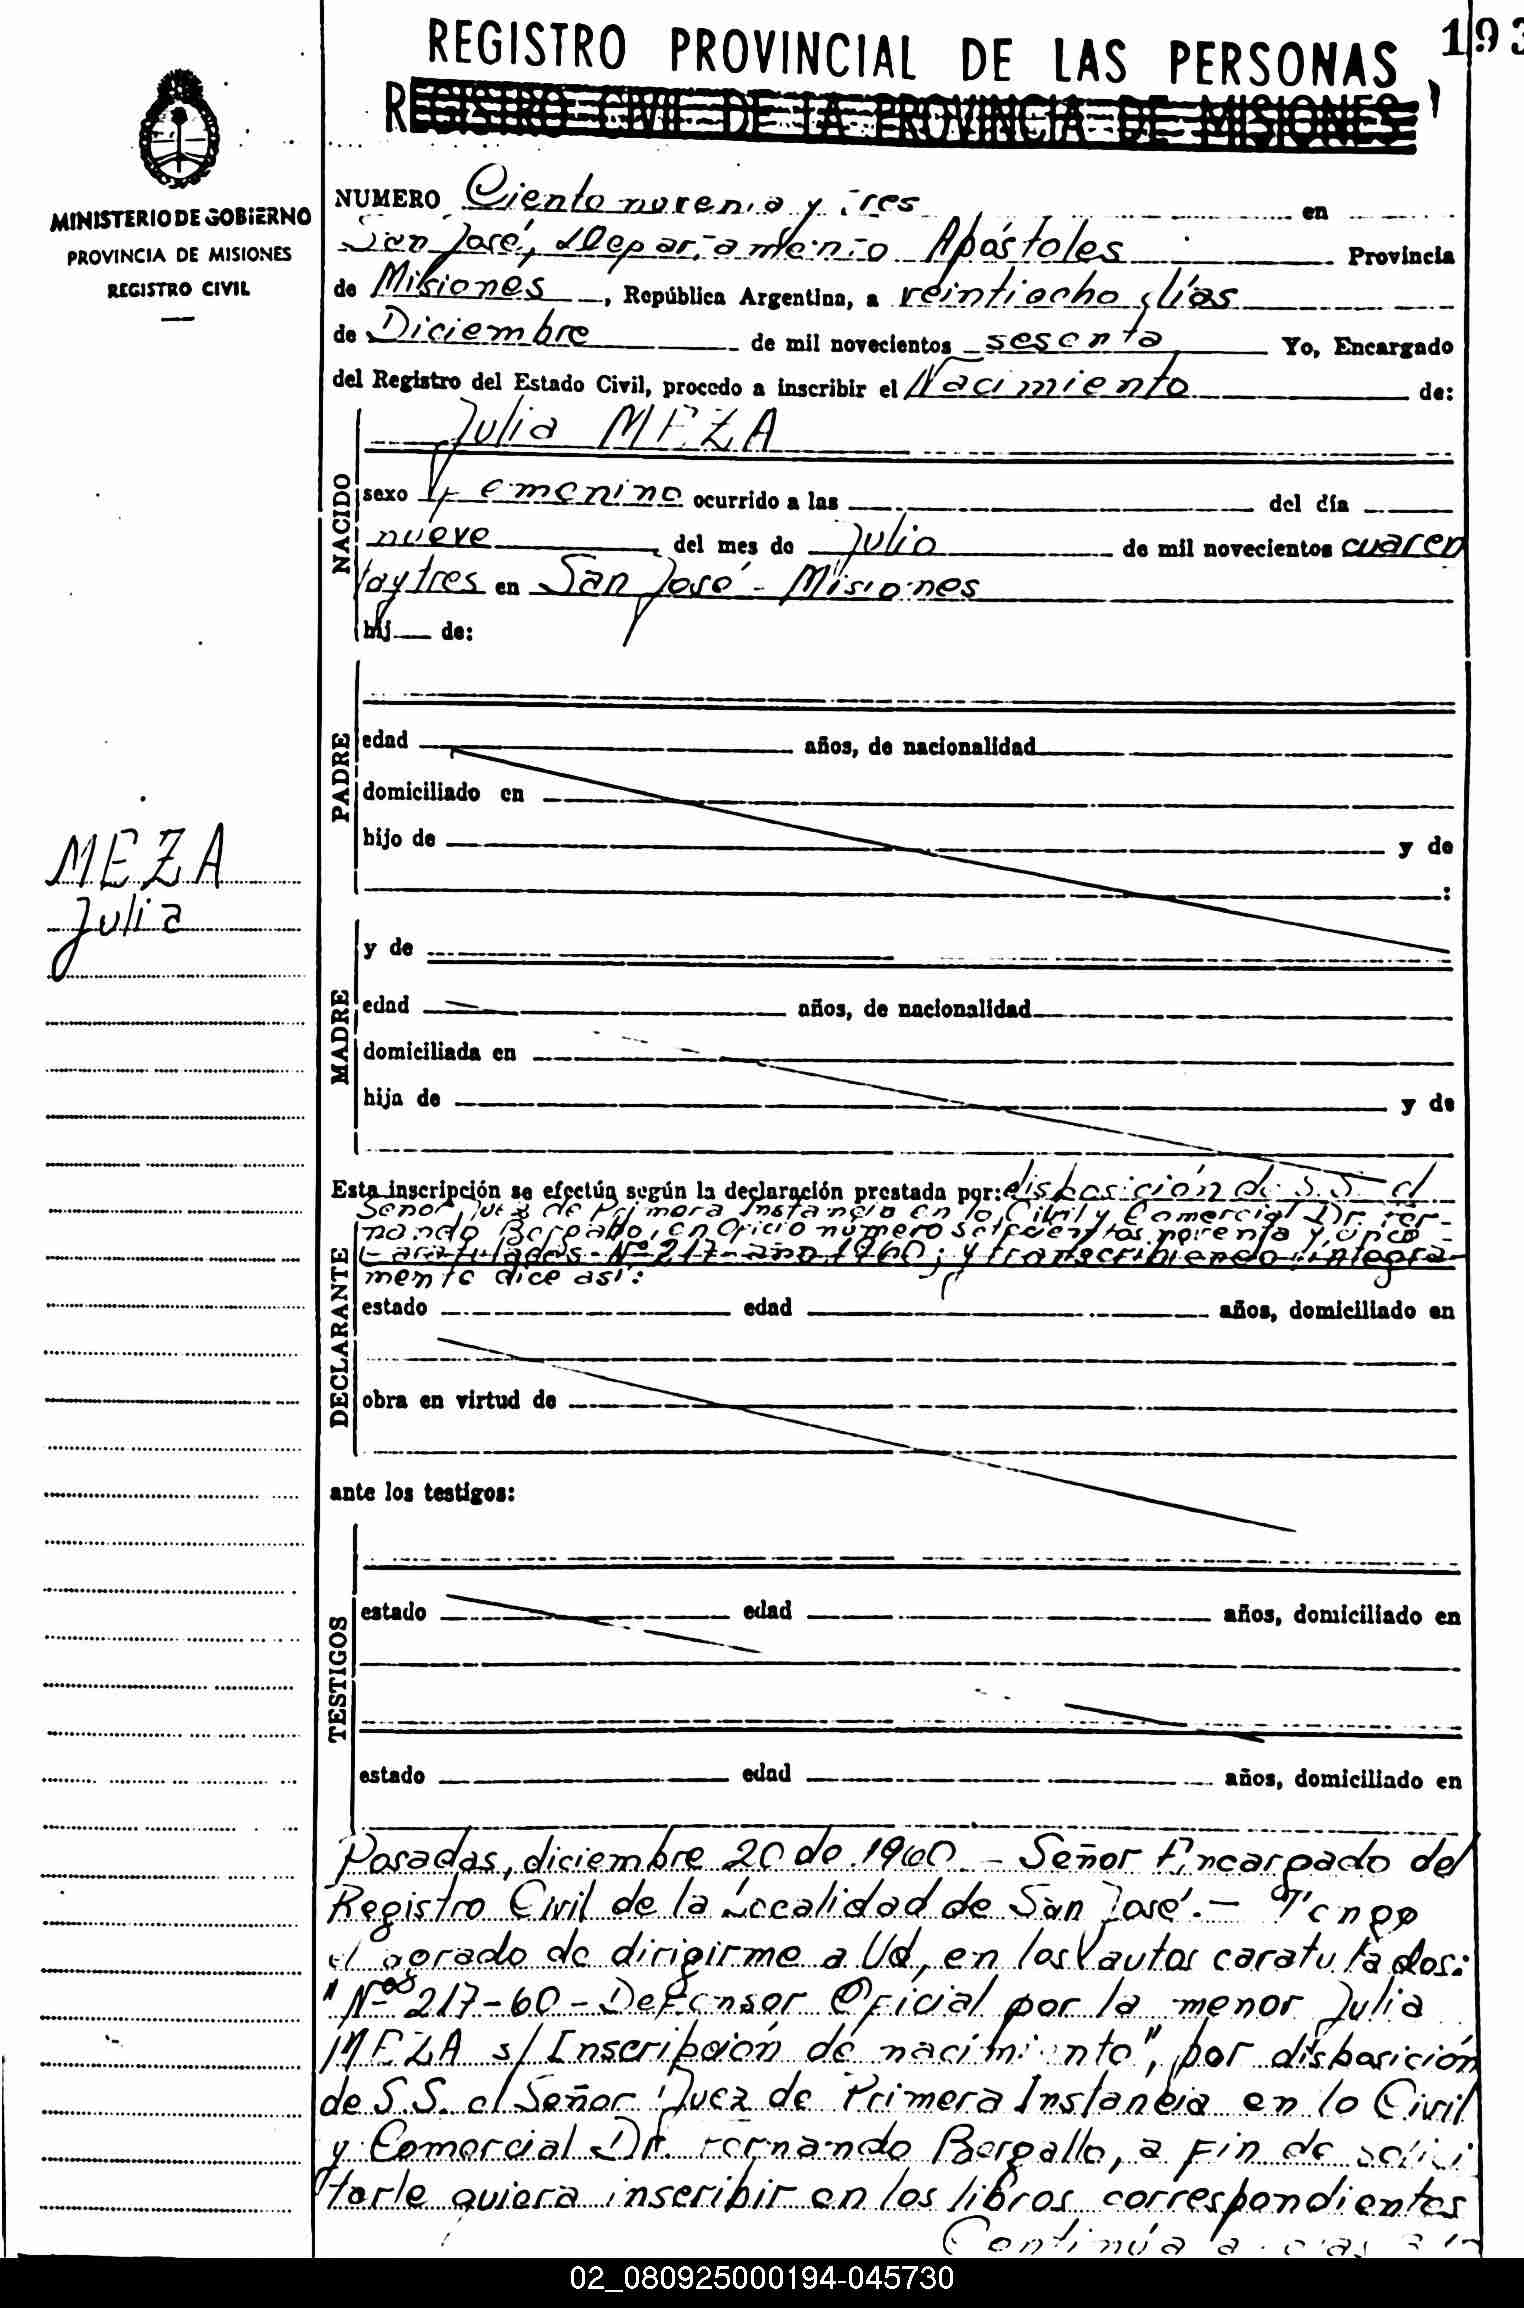 193
REGISTRO PROVINCIAL DE LAS PERSONAS
REGISTRO CIVIL DE LA PROVINCIA DE MISIONES
MINISTERIO DE GOBIERNO
PROVINCIA DE MISIONES
REGISTRO CIVIL
NUMERO Ciento noventa y tres en
San José, departamento Apóstoles Provincia
de Misiones, República Argentina, a veintiocho días
de Diciembre de mil novecientos sesenta Yo, Encargado
del Registro del Estado Civil, procedo a inscribir el Nacimiento de:
NACIDO
Julia MEZA
sexo Femenino ocurrido a las del día
nueve del mes de Julio de mil novecientos cuaren
ta y tres en San José - Misiones
hij de:
PADRE
edad años, de nacionalidad
domiciliado en
hijo de y de
:
MEZA
Julia
MADRE
y de
edad años, de nacionalidad
domiciliada en
hija de y de
Esta inscripción se efectúa según la declaración prestada por: disposición de S.S. el
Señor Juez de Primera Instancia en lo Civil y Comercial Dr. Fer-
nando Bergallo, en Oficio número setecientos noventa y once -
Caratulados - Nº 217 - año 1960; y transcribiendo integra-
mente dice así:
DECLARANTE
estado edad años, domiciliado en
obra en virtud de
ante los testigos:
TESTIGOS
estado edad años, domiciliado en
estado edad años, domiciliado en
Posadas, diciembre 20 de 1960. - Señor Encargado del
Registro Civil de la Localidad de San José. - Tengo
el agrado de dirigirme a Ud, en los autos caratulados:
"Nos 217-60 - Defensor Oficial por la menor Julia
MEZA s/ Inscripción de nacimiento", por disposición
de S.S. el Señor Juez de Primera Instancia en lo Civil
y Comercial Dr. Fernando Bergallo, a fin de solici
tarle quiera inscribir en los libros correspondientes
Continúa a
02_080925000194-045730